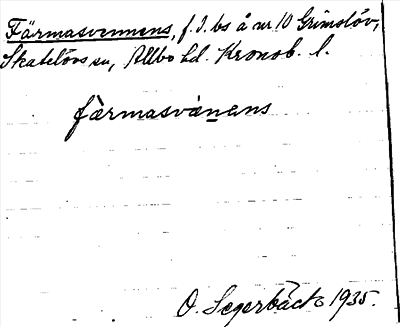 Färmasvennens, f.d. bs å nr 10 Grimslöv,
Skatelövs sn, Allbo hd. Kronob. l.
färmasvànens
O. Segerbäck 1935.